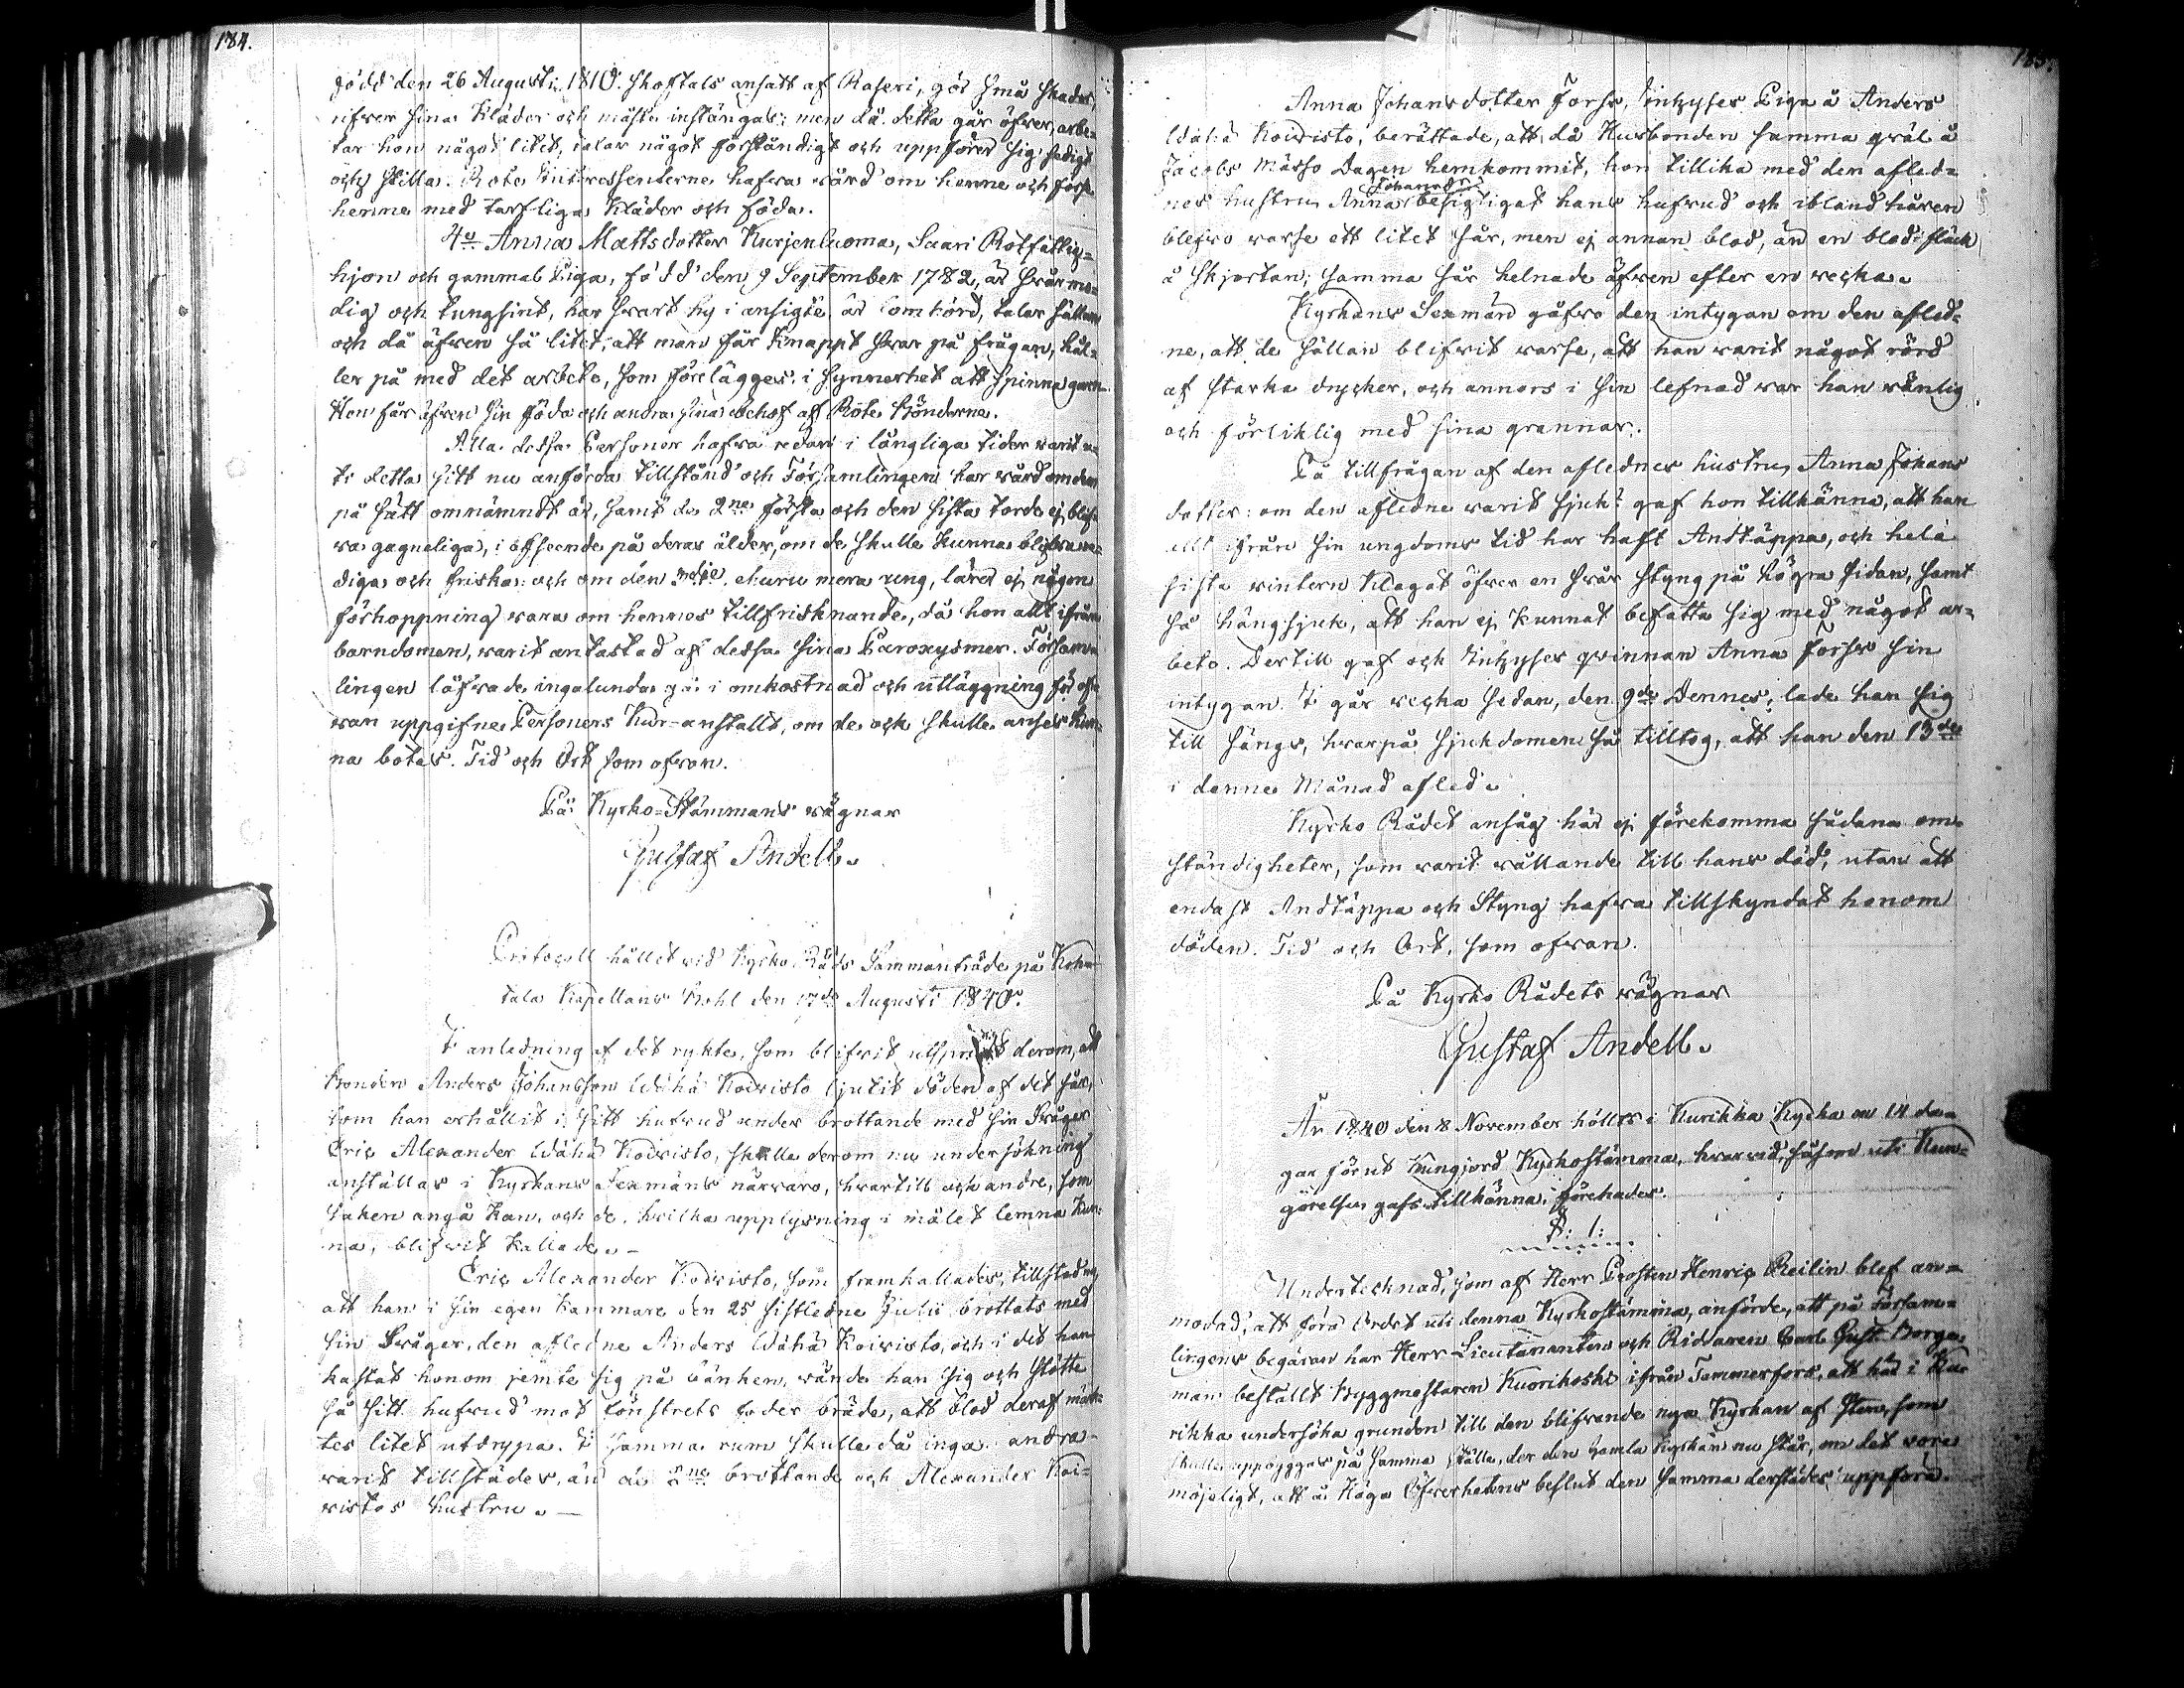 184.
född den 26 Augusti 1810. Skoftals ansatt af Raseri, gör små skador,
rifver sina Kläder och måste instängas; men då detta går öfver, arbe-
tar hon något litet, talar något förståndigt och uppförer sig sedigt
och stilla. Rote Intressenterne hafva vård om henne och förse
henne med tarfliga Kläder och föda.
4o Anna Mattsdotter Kurjenluoma, Saari Rotfattig-
hjon och gammal Piga, född den 9 September 1782, är svårmo-
dig och tungsint, har svart hy i ansigte, är lomhörd, talar sällan
och då äfven så litet, att man får knappt svar på frågan, hål-
ler på med det arbete, som förelägges, i synnerhet att spinna garn.
Hon får äfven sin föda och andra sina behof af Rote Bönderne.
Alla dessa Personer hafva redan i långliga tider varit u-
ti detta sitt nu anförda tillstånd och Församlingen har vård om dem
på sätt omnämndt är, samt de 2ne första och den sista torde ej blif-
va gagneliga, i afseende på deras ålder, om de skulle kunna blifva re-
diga och friska: och om den 3dje, ehuru mera ung, lärer ej någon
förhoppning vara om hennes tillfrisknande, då hon allt ifrån
barndomen, varit antastad af dessa sina Paroxysmer. Försam-
lingen låfvade ingalunda gå i omkostnad och utläggning för of-
van uppgifne Personers Kur-anstallt, om de och skulle anses kun-
na botas. Tid och Ort som ofvan.
På Kyrko-Stämmans vägnar
Gustaf Andell.
Protocoll hållet vid Kyrko Råds Sammanträde på
tala Kapellans Bohl den 17de Augusti 1840.
I anledning af det rykte, som blifvit utspridt derom, att
Bonden Anders Johansson Wähä Koivisto ljutit döden af det sår,
som han erhållit i sitt hufvud under brottande med sin Svåger
Eric Alexander Wähä Koivisto, skulle derom nu undersökning
anställas i Kyrkans Sexmäns närvaro, hvartill och andre, som
saken angå kan, och de, hvilka upplysning i målet lemna kun-
na, blifvit kallade. —
Eric Alexander Koivisto, som framkallades, tillstod
att han i sin egen Kammare den 25 sistledne Julii brottats med
sin Svåger, den afledne Anders Wähä Koivisto, och i det han
kastat honom jemte sig på bänken, vände han sig och stötte
så sitt hufvud mot fönstrets foder bräde, att blod deraf måt-
tes litet utdrypa. I samma rum skulle då inga andra
varit tillstädes, än de 2ne brottande och Alexander Koi-
vistos hustru. —
185.
Anna Johansdotter Forss, Inhyses Piga å Anders
Wähä Koivisto, berättade, att då Husbonden samma qväl å
Jacobs Mässo Dagen hemkommit, hon tillika med den afled-
nes hustru Anna Johansdr besigtigat hans hufvud och ibland håren
blefvo varse ett litet sår, men ej annan blod, än en blod fläck
å skjortan; samma sår helnade äfven efter en vecka.
Kyrkans Sexmän gåfvo den intygan om den afled-
ne, att de sällan blifvit varse, att han varit något rörd
af starka drycker, och annors i sin lefnad var han vänlig
och förliklig med sina grannar.
På tillfrågan af den aflednes hustru Anna Johans
dotter: om den afledne varit sjuk? gaf hon tillkänna, att han
allt ifrån sin ungdoms tid har haft Andtäppa, och hela
sista vintern klagat öfver en svår styng på högra sidan, samt
så hängsjuk, att han ej kunnat befatta sig med något ar-
bete. Dertill gaf och Inhyses qvinnan Anna Forss sin
intygan. I går vecka sedan, den 9de Dennes, lade han sig
till sängs, hvarpå sjukdomen så tilltog, att han den 13de
i denne Månad afled.
Kyrko Rådet ansåg här ej förekomma sådana om-
ständigheter, som varit vållande till hans död, utan att
endast Andtäppa och Styng hafva tillskyndat honom
döden. Tid och Ort, som ofvan.
På Kyrko Rådets vägnar
Gustaf Andell.
År 1840 den 8 November hölls i Kurikka Kyrka en 14 da-
gar förut kungjord Kyrkostämma, hvarvid, såsom uti Kun-
görelsen gafs tillkänna, förehades.
§. 1.
Undertecknad, som af Herr Prosten Henric Reilin blef an-
modad, att föra Ordet uti denna Kyrkostämma, anförde, att på Försam-
lingens begäran har Herr Lieutenanten och Riddaren Carl Gust. Borg-
man beställt Byggmästaren Kuorikoski ifrån Tammerfors, att här i Ku-
rikka undersöka grunden till den blifvande nya Kyrkan af Sten, som
skulle uppbyggas på samma ställe, der den gamla Kyrkan nu står, om det vore
möjeligt, att å Höga Öfverhetens beslut den samma derstädes uppföra.